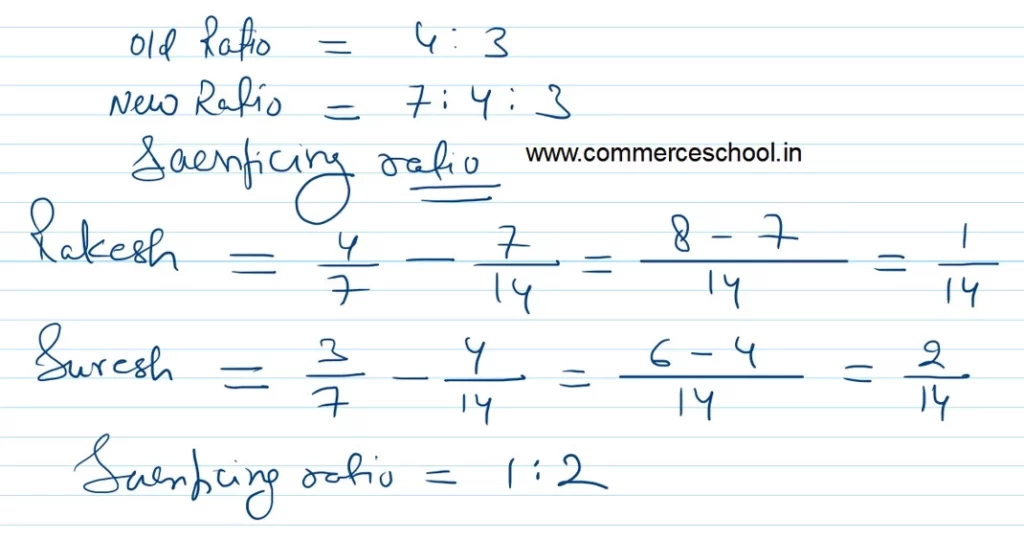 Old Ratio = 4 : 3
New Ratio = 7 : 4 : 3
Sacrificing ratio www.commerceschool.in
Rakesh = 4/7 - 7/14 = 8 - 7/14 = 1/14
Suresh = 3/7 - 4/14 = 6 - 4/14 = 2/14
Sacrificing ratio = 1 : 2